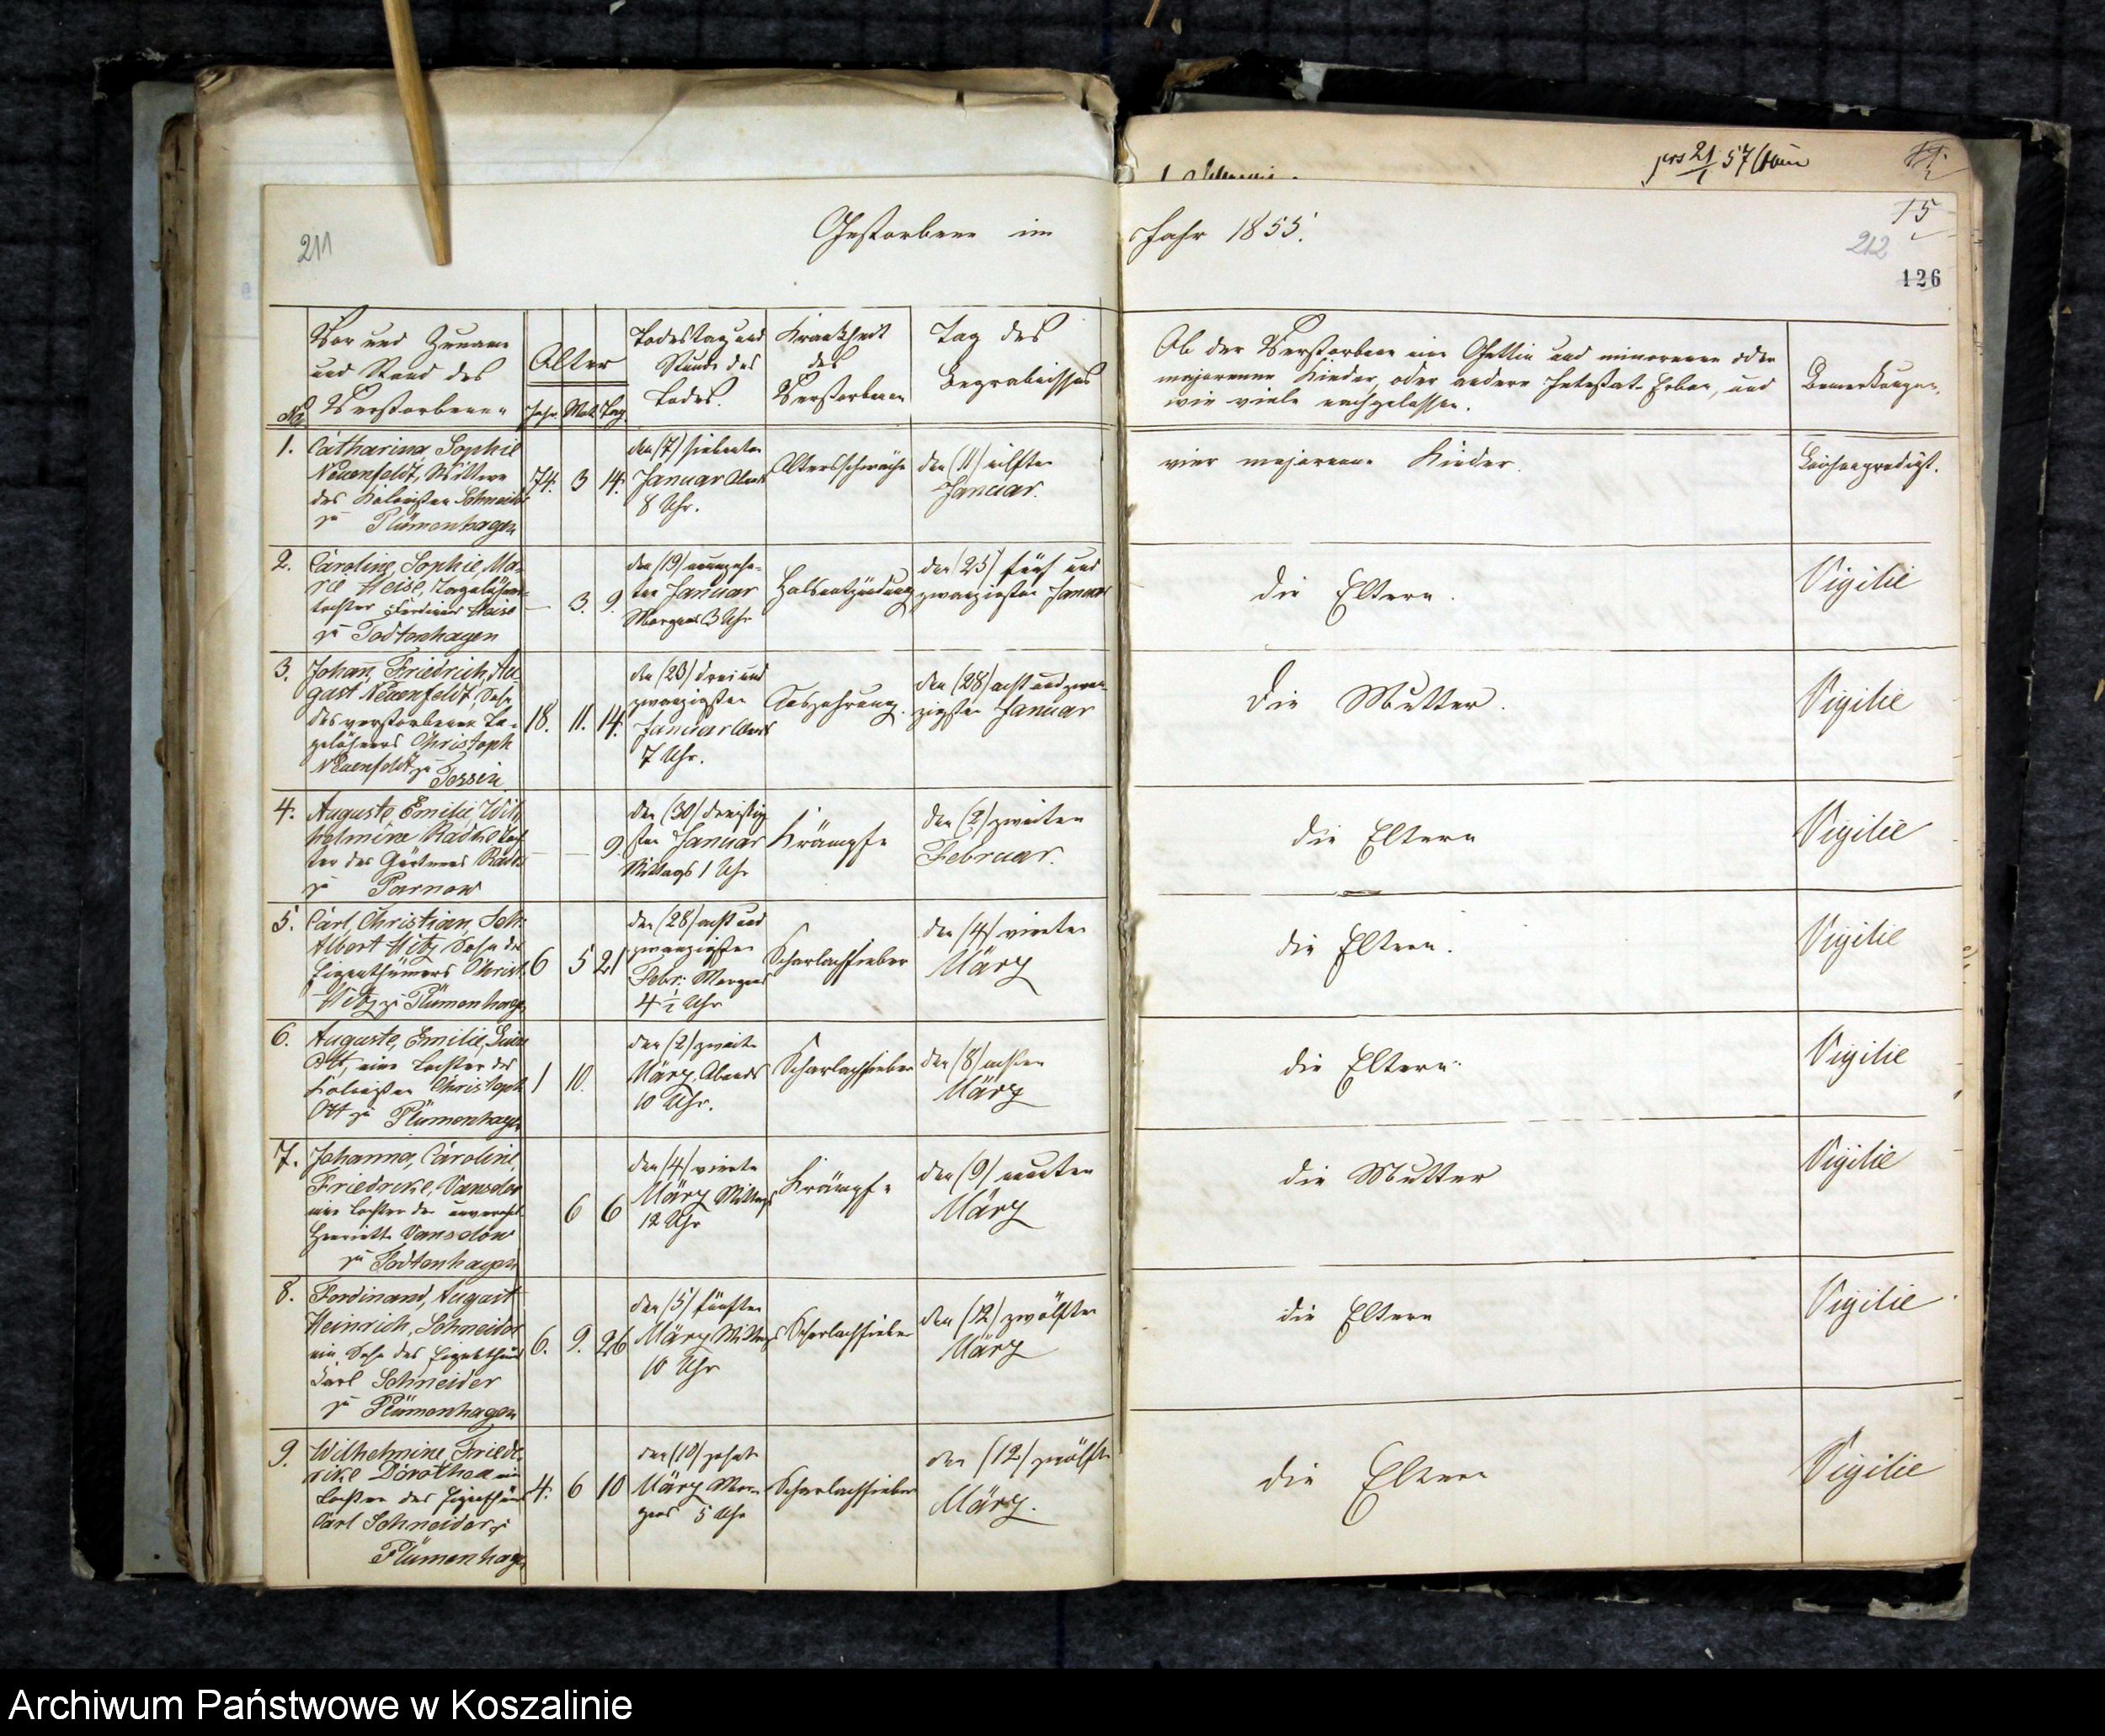 prs 21/1 57
15
211
Gestorbene im Jahr 1855.
212
126
No
Vor und Zuname
und Stand des
Verstorbenen
Alter
Jahr Mot. Tag
Todestag und
Stunde des
Todes.
Krankheit
des
Verstorbenen
Tag des
Begräbnisses
Ob der Verstorbene eine Gattin und minorenne oder
majorenne Kinder, oder andere Intestat-Erben, und
wie viele nachgelassen.
Bemerkungen.
1.
Catharina Sophie
Neuenfeldt, Wittwe
des Kolonisten Schneider
zu Plümenhagen
74. 3 14.
den (7) siebenten
Januar Abends
8 Uhr.
Altersschwäche
den (11) eilften
Januar.
vier majorenne Kinder.
Leichenpredigt.
2.
Caroline, Sophie, Ma-
rie Heise, Tagelöhner-
tochter Ferdinand Heise
zu Todtenhagen
— 3. 9.
den (19) neunzehn-
ten Januar
Morgens 3 Uhr
Halsentzündung
den (25) fünf und
zwanzigsten Januar
die Eltern.
Vigilie
3.
Johan, Friedrich, Au-
gust Neuenfeldt, Sohn
des verstorbenen Ta-
gelöhners Christoph
Neuenfeldt zu
Tessin
18. 11. 14.
den (23) drei und
zwanzigsten
Januar Abends
7 Uhr.
Auszehrung.
den (28) acht und zwan-
zigsten Januar
Die Mutter.
Vigilie
4.
Auguste, Emilie, Wil-
helmine Radtke Toch-
ter des Gärtners Radtke
zu Parnow
— — 9.
den (30) dreißig-
sten Januar
Mittags 1 Uhr
Krämpfe
den (2) zweiten
Februar.
die Eltern
Vigilie
5.
Carl, Christian, Joh:
Albert Hitz, Sohn des
Eigenthümers Christ.
Hitz zu Plümenhagen
6 5 21
den (28) acht und
zwanzigsten
Febr: Morgens
4 ½ Uhr
Scharlachfieber
den (4) vierten
März
die Eltern.
Vigilie
6.
Auguste, Emilie, Luise
Ott, eine Tochter des
Kolonisten Christoph
Ott zu Plümenhagen
1 10.
den (2) zweite
März, Abends
10 Uhr.
Scharlachfieber
den (8) achten
März
die Eltern.
Vigilie
7.
Johanna, Caroline,
Friedrike, Vansdow
eine Tochter der unverehel.
Henriette Vansdow
zu Todtenhagen
6 6
den (4) vierte
März Mittags
12 Uhr
Krämpfe
den (9) neunten
März
die Mutter
Vigilie
8.
Ferdinand, August
Heinrich, Schneider
ein Sohn des Eigenthüm
Carl Schneider
zu Plümenhagen
6. 9. 26
den (5) fünften
März Mittags
10 Uhr
Scharlachfieber
den (12) zwölften
März
die Eltern
Vigilie
9.
Wilhelmine, Friede-
rike Dorothea ein
Tochter des Eigenthüm
Carl Schneider zu
Plümenhagen
4. 6 10
den (10) zehnte
März Mor-
gens 5 Uhr
Scharlachfieber
den (12) zwölften
März.
die Eltern
Vigilie
Archiwum Państwowe w Koszalinie